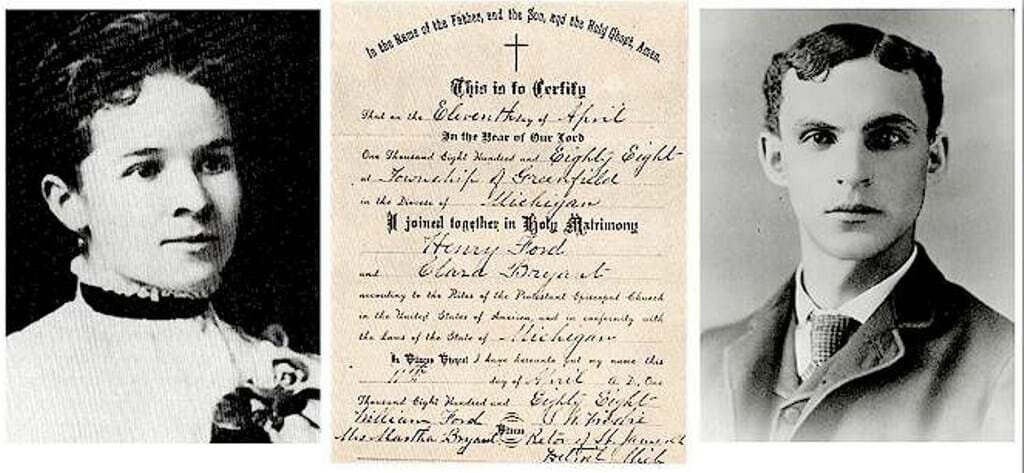 In the Name of the Father, and the Son, and the Holy Ghost, Amen.
This is to Certify
That on the Eleventh day of April
In the Year of Our Lord
One Thousand Eight Hundred and Eighty Eight
at Township of Greenfield
in the Diocese of Michigan
I joined together in Holy Matrimony
Henry Ford
and Clara Bryant
according to the Rites of the Protestant Episcopal Church
in the United States of America, and in conformity with
the Laws of the State of Michigan
In Witness Whereof I have hereunto put my name this
11th day of April A.D. One
Thousand Eight Hundred and Eighty Eight
William Ford
Mrs Martha Bryant Rector of St James Ch
Detroit Mich